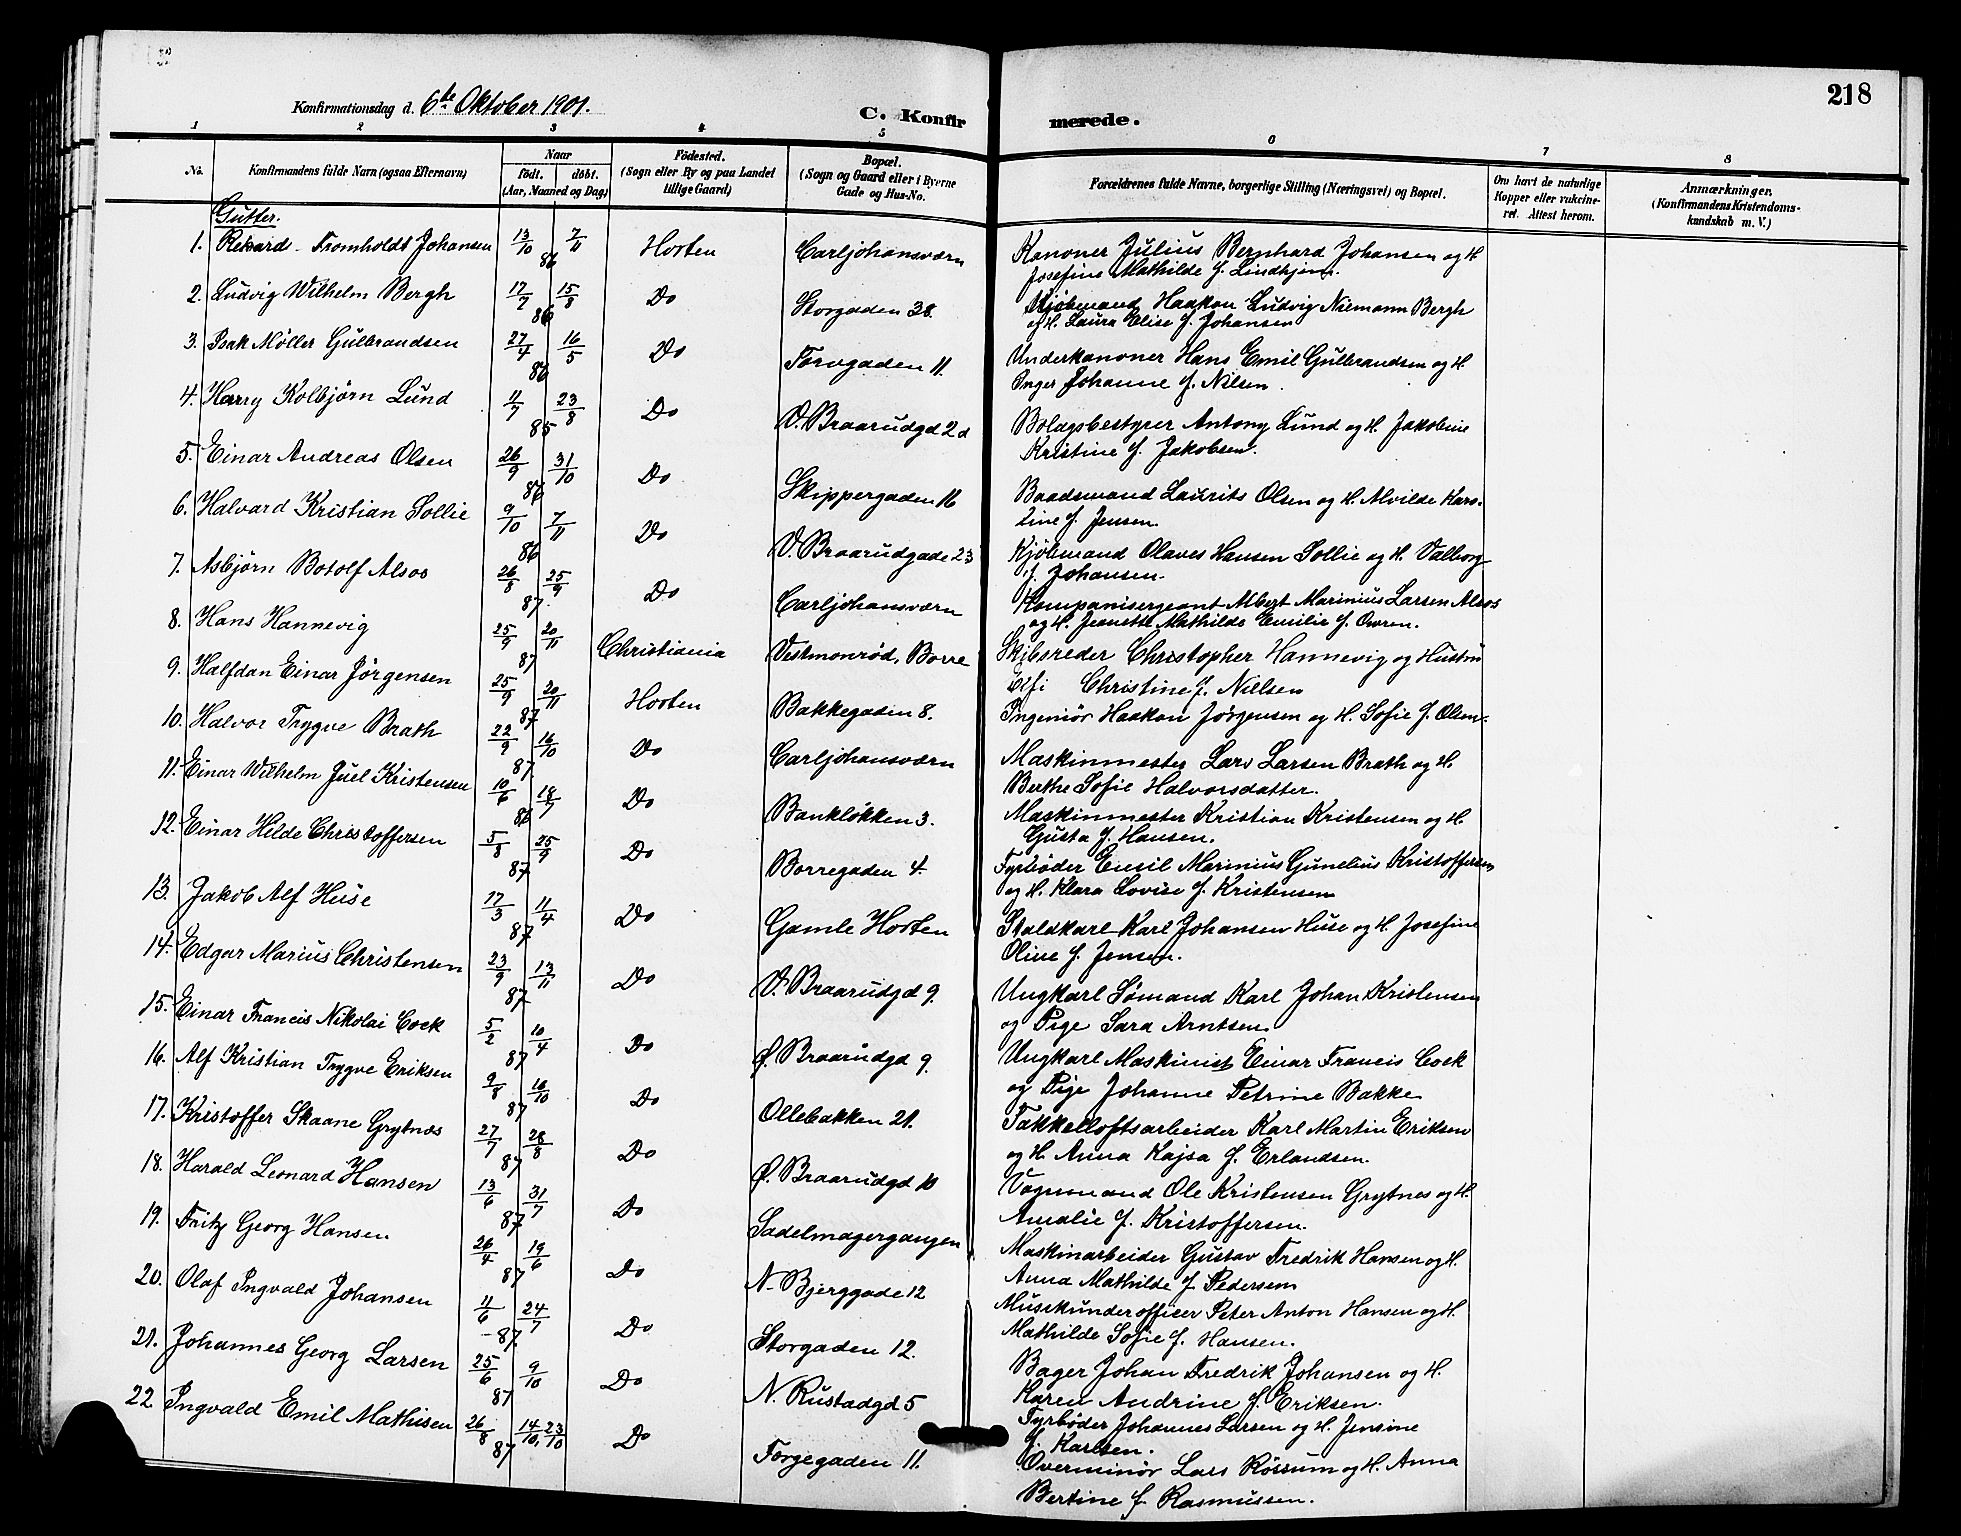 218
Konfirmationsdag d. 6te Oktober 1901.
C. Konfirmerede.
1 2 3 4 5 6 7 8
No. Konfirmandens fulde Navn (ogsaa Efternavn) Naar født. døbt. (Aar, Maaned og Dag) Fødested. (Sogn eller By og paa Landet tillige Gaard) Bopæl. (Sogn og Gaard eller i Byerne Gade og Hus-No. Forældrenes fulde Navne, borgerlige Stilling (Næringsvei) og Bopæl. Om havt de naturlige Kopper eller vakcineret. Attest herom. Anmærkninger. (Konfirmandens Kristendomskundskab m. V.)
Gutter.
1. Rikard Tromholdt Johansen 13/10 86 7/11 Horten Carljohansværn Kanoner Julius Bernhard Johansen og H.
Josefine Mathilde f. Lindhjem.
2. Ludvig Wilhelm Bergh 17/7 86 15/8 Do Storgaden 38. Kjøbmand Haakon Ludvig Niemann Bergh
og H. Laura Elise f. Johansen
3. Isak Møller Gulbrandsen 27/4 86 16/5 Do Torvgaden 11. Underkanoner Hans Emil Gulbrandsen og H.
Inger Johanne f. Nilsen.
4. Harry Kolbjørn Lund 11/7 85 23/8 Do V. Braarudgd 2d Bolagsbestyrer Antony Lund og H. Jakobine
Kristine f. Jakobsen.
5. Einar Andreas Olsen 26/9 86 31/10 Do Skippergaden 16 Baadsmand Laurits Olsen og H. Alvilde Karo-
line f. Jensen.
6. Halvard Kristian Sollie 9/10 86 7/11 Do V. Braarudgade 23 Kjøbmand Olaves Hansen Sollie og H. Valborg
f. Johansen.
7. Asbjørn Botolf Alsos 26/8 87. 25/9 Do Carljohansværn Kompanisergeant Albert Marinius Larsen Alsos
og H. Jeanette Mathilde Emilie f. Owren.
8. Hans Hannevig 25/9 87 20/11 Christiania Vestmonrød, Borre Skibsreder Christopher Hannevig og Hustru
Elfi Christine f. Nielsen
9. Halfdan Einar Jørgensen 25/9 87 20/11 Horten Bakkegaden 8. Ingeniør Haakon Jørgensen og H. Sofie f. Olsen.
10. Halvor Trygve Brath 22/9 87 16/10 Do Carljohansværn Maskinmester Lars Larsen Brath og H.
Berthe Sofie Halvorsdatter.
11. Einar Wilhelm Juel Kristensen 10/6 86 18/7 Do Bankløkken 3. Maskinmester Kristian Kristensen og H.
Gusta f. Hansen.
12. Einar Hilde Christoffersen 5/8 87 25/9 Do Borregaden 4. Fyrbøder Emil Marinius Gunelius Kristoffersen
og H. Klara Lovise f. Kristensen
13. Jakob Alf Huse 17/3 87 11/4 Do Gamle Horten Staldkarl Karl Johansen Huse og H. Josefine
Oline f. Jensen.
14. Edgar Marius Christensen 23/9 87 13/11 Do V. Braarudgd 9. Ungkarl Sømand Karl Johan Kristensen
og Pige Sara Arntsen
15. Einar Francis Nikolai Cock 5/2 87 10/4 Do Ø. Braarudgd 9. Ungkarl Maskinist Einar Francis Cock
og Pige Johanne Petrine Bakke
16. Alf Kristian Trygve Eriksen 9/8 87 16/10 Do Ollebakken 21. Takkelloftsarbeider Karl Martin Eriksen
og H. Anna Kajsa f. Erlandsen.
17. Kristoffer Skaane Grytnæs 27/7 87 28/8 Do Ø. Braarudgd 10 Vognmand Ole Kristensen Grytnes og H.
Amalie f. Kristoffersen.
18. Harald Leonard Hansen 13/6 87 31/7 Do Sadelmagergangen Maskinarbeider Gustav Fredrik Hansen og H.
Anna Mathilde f. Pedersen
19. Fritz Georg Hansen 26/4 87 19/6 Do N. Bjerggade 12 Musikunderofficer Peter Anton Hansen og H.
Mathilde Sofie f. Hansen.
20. Olaf Ingvald Johansen 11/6 87. 24/7 Do Storgaden 12. Bager Johan Fredrik Johansen og H.
Karen Andrine f. Eriksen.
21. Johannes Georg Larsen 25/6 87 9/10 Do N. Rustadgd 5 Fyrbøder Johannes Larsen og H. Jensine
f. Karlsen.
22. Ingvald Emil Mathisen 26/8 87 14/10, 23/10 Do Torgegaden 11. Overminør Lars Røssum og H. Anna
Bertine f. Rasmussen.